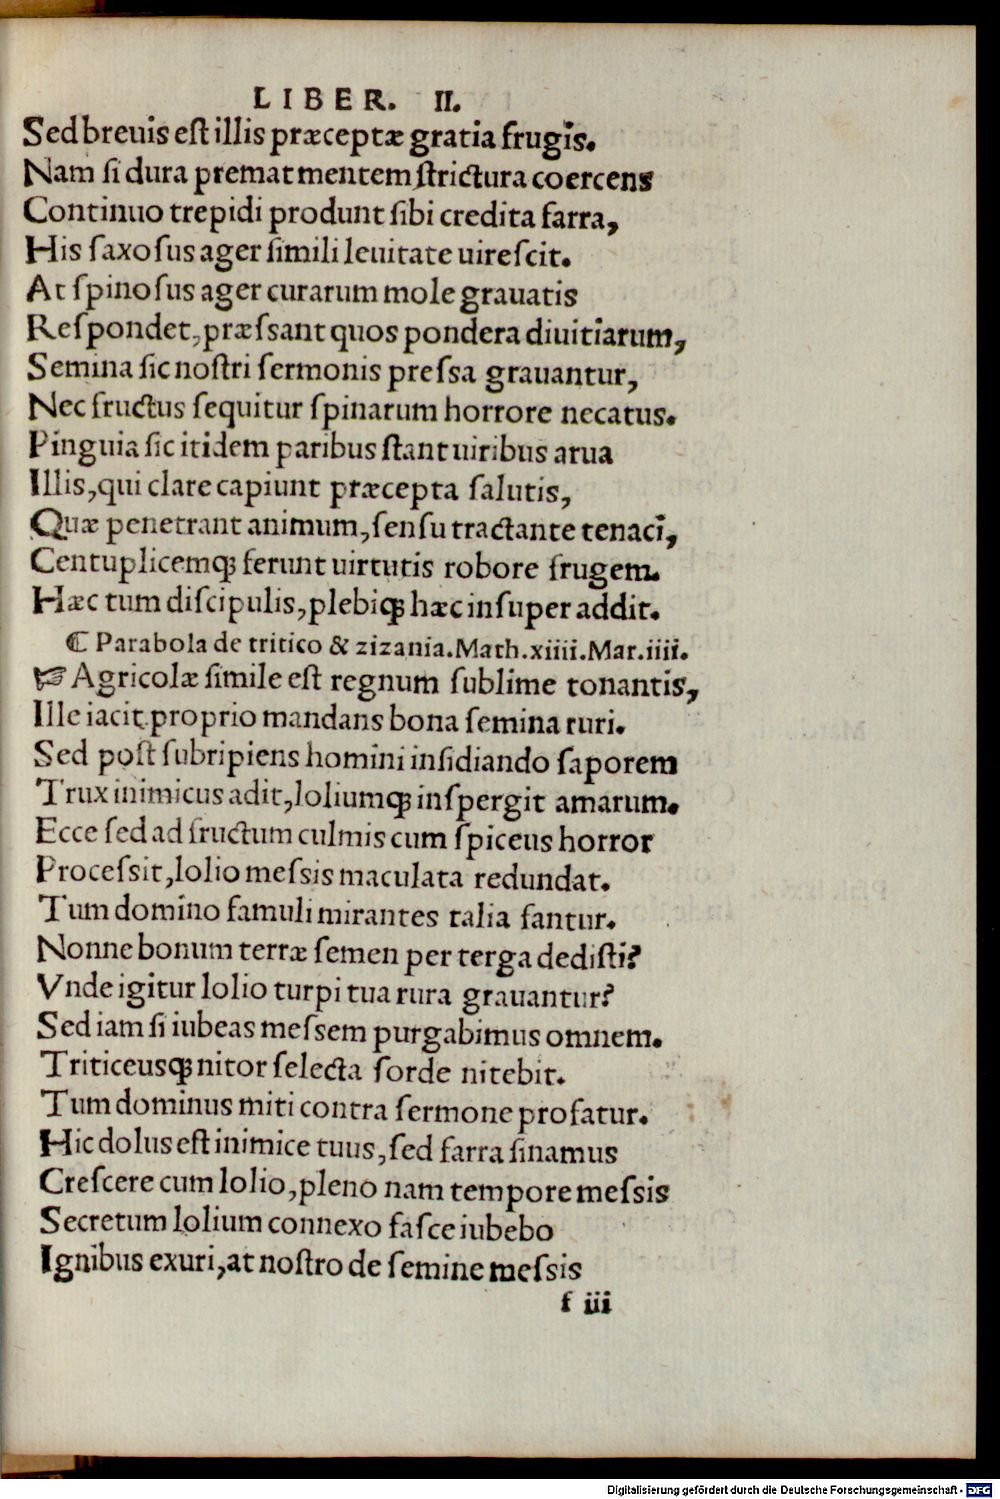 LIBER. II.
Sed breuis est illis præceptæ gratia frugis.
Nam si dura premat mentem strictura coercens
Continuo trepidi produnt sibi credita farra,
His saxosus ager simili leuitate uirescit.
At spinosus ager curarum mole grauatis
Respondet, præssant quos pondera diuitiarum,
Semina sic nostri sermonis pressa grauantur,
Nec fructus sequitur spinarum horrore necatus.
Pinguia sic itidem paribus stant uiribus arua
Illis, qui clare capiunt præcepta salutis,
Quæ penetrant animum, sensu tractante tenaci,
Centuplicemq; ferunt uirtutis robore frugem.
Hæc tum discipulis, plebiq; hæc insuper addit.
⁋ Parabola de tritico & zizania. Math. xiiii. Mar. iiii.
☞ Agricolæ simile est regnum sublime tonantis,
Ille iacit proprio mandans bona semina ruri.
Sed post subripiens homini insidiando saporem
Trux inimicus adit, loliumq; inspergit amarum.
Ecce sed ad fructum culmis cum spiceus horror
Processit, lolio messis maculata redundat.
Tum domino famuli mirantes talia fantur.
Nonne bonum terræ semen per terga dedisti?
Vnde igitur lolio turpi tua rura grauantur?
Sed iam si iubeas messem purgabimus omnem.
Triticeusq; nitor selecta sorde nitebit.
Tum dominus miti contra sermone profatur.
Hic dolus est inimice tuus, sed farra sinamus
Crescere cum lolio, pleno nam tempore messis
Secretum lolium connexo fasce iubebo
Ignibus exuri, at nostro de semine messis
f iii
Digitalisierung gefördert durch die Deutsche Forschungsgemeinschaft - DFG